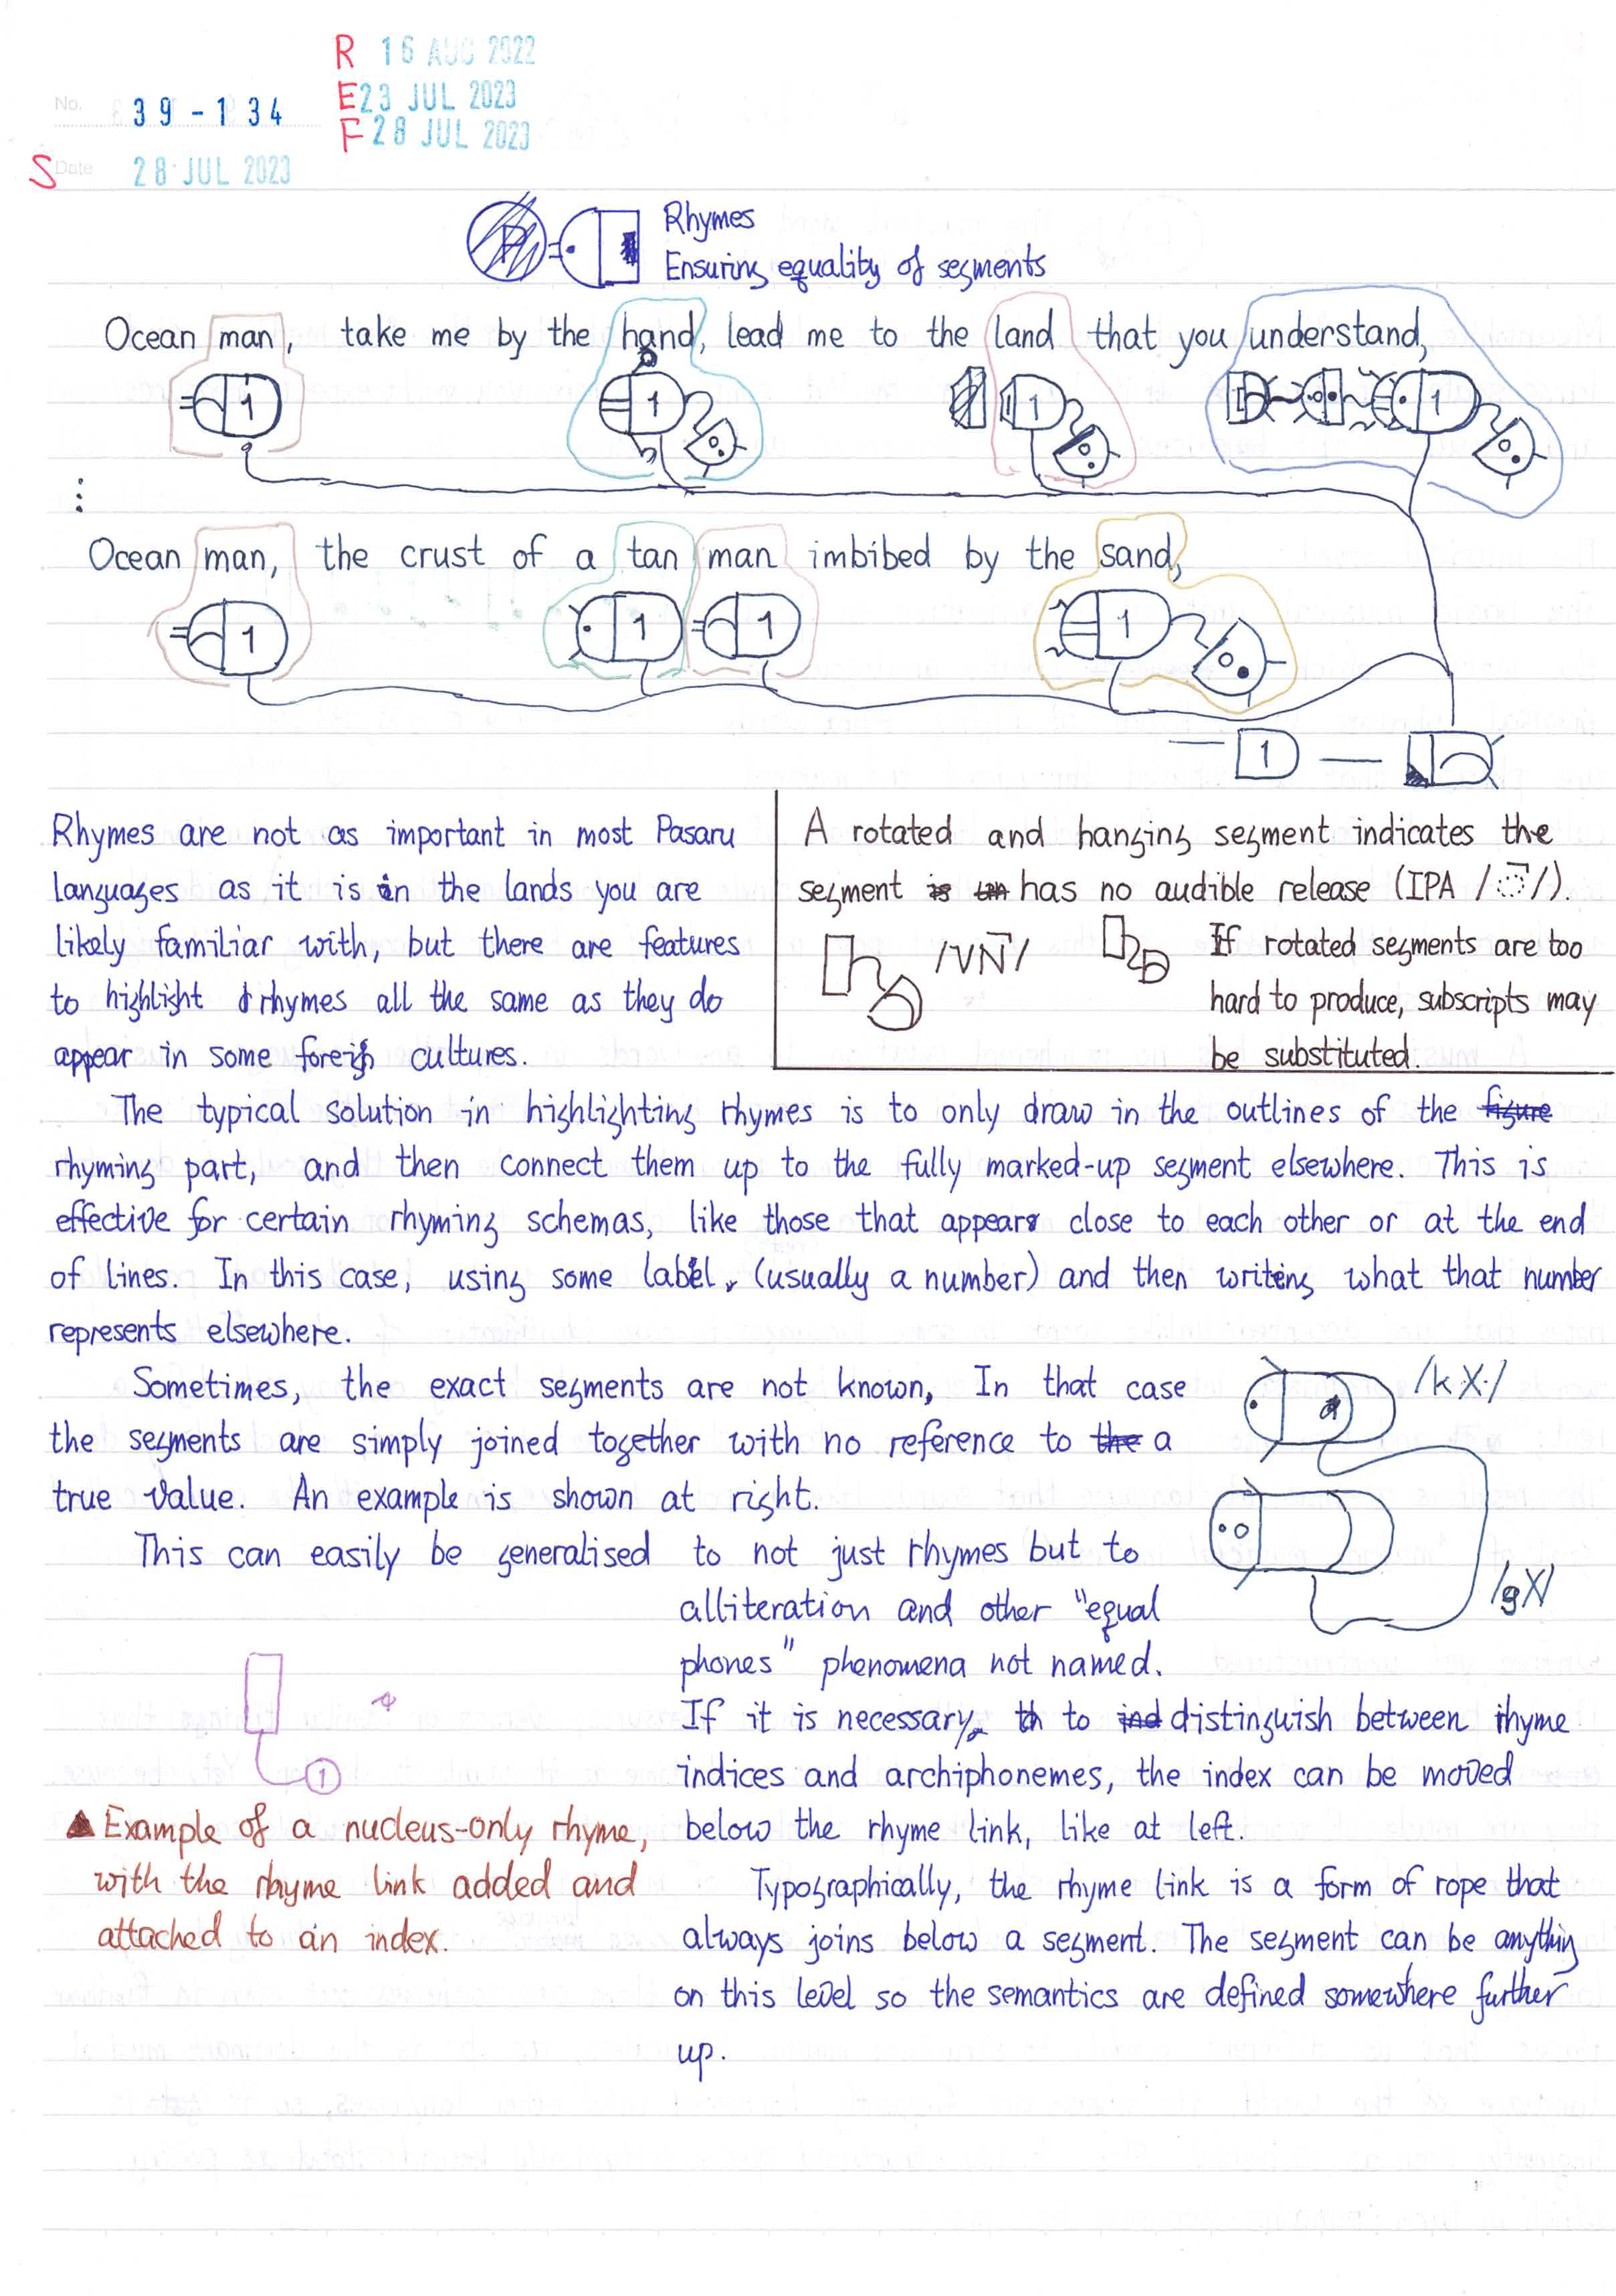 R 16 AUG 2022
No. 39-134
E 23 JUL 2023
F 28 JUL 2023
S Date 28 JUL 2023
Rhymes
Ensuring equality of segments
Ocean man, take me by the hand, lead me to the land that you understand,
1 1 1 1
⋮
Ocean man, the crust of a tan man imbibed by the sand,
1 1 1 1
1
Rhymes are not as important in most Pasaru
languages as it is in the lands you are
likely familiar with, but there are features
to highlight rhymes all the same as they do
appear in some foreign cultures.
A rotated and hanging segment indicates the
segment has no audible release (IPA /◌̚/).
/VN̚/
If rotated segments are too
hard to produce, subscripts may
be substituted.
The typical solution in highlighting rhymes is to only draw in the outlines of the figure
rhyming part, and then connect them up to the fully marked-up segment elsewhere. This is
effective for certain rhyming schemas, like those that appears close to each other or at the end
of lines. In this case, using some label, (usually a number) and then writing what that number
represents elsewhere.
Sometimes, the exact segments are not known, In that case
the segments are simply joined together with no reference to the a
true value. An example is shown at right.
/kX/
/gX/
This can easily be generalised to not just rhymes but to
alliteration and other "equal
phones" phenomena not named.
If it is necessary, to distinguish between rhyme
indices and archiphonemes, the index can be moved
below the rhyme link, like at left.
1
▲ Example of a nucleus-only rhyme,
with the rhyme link added and
attached to an index.
Typographically, the rhyme link is a form of rope that
always joins below a segment. The segment can be anything
on this level so the semantics are defined somewhere further
up.